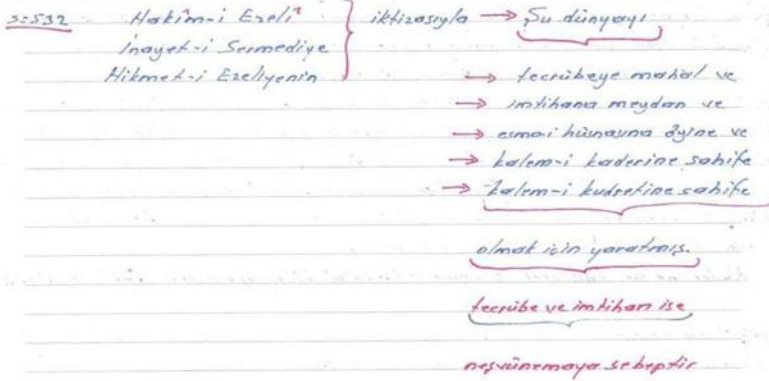 s=532 Hakîm-i Ezelî iktizasıyla → Şu dünyayı
İnayet-i Sermediye
Hikmet-i Ezeliyenin
→ tecrübeye mahal ve
→ imtihana meydan ve
→ esma-i hüsnasına âyine ve
→ kalem-i kaderine sahife
→ kalem-i kudretine sahife
olmak için yaratmış.
tecrübe ve imtihan ise
neşvünemaya sebeptir